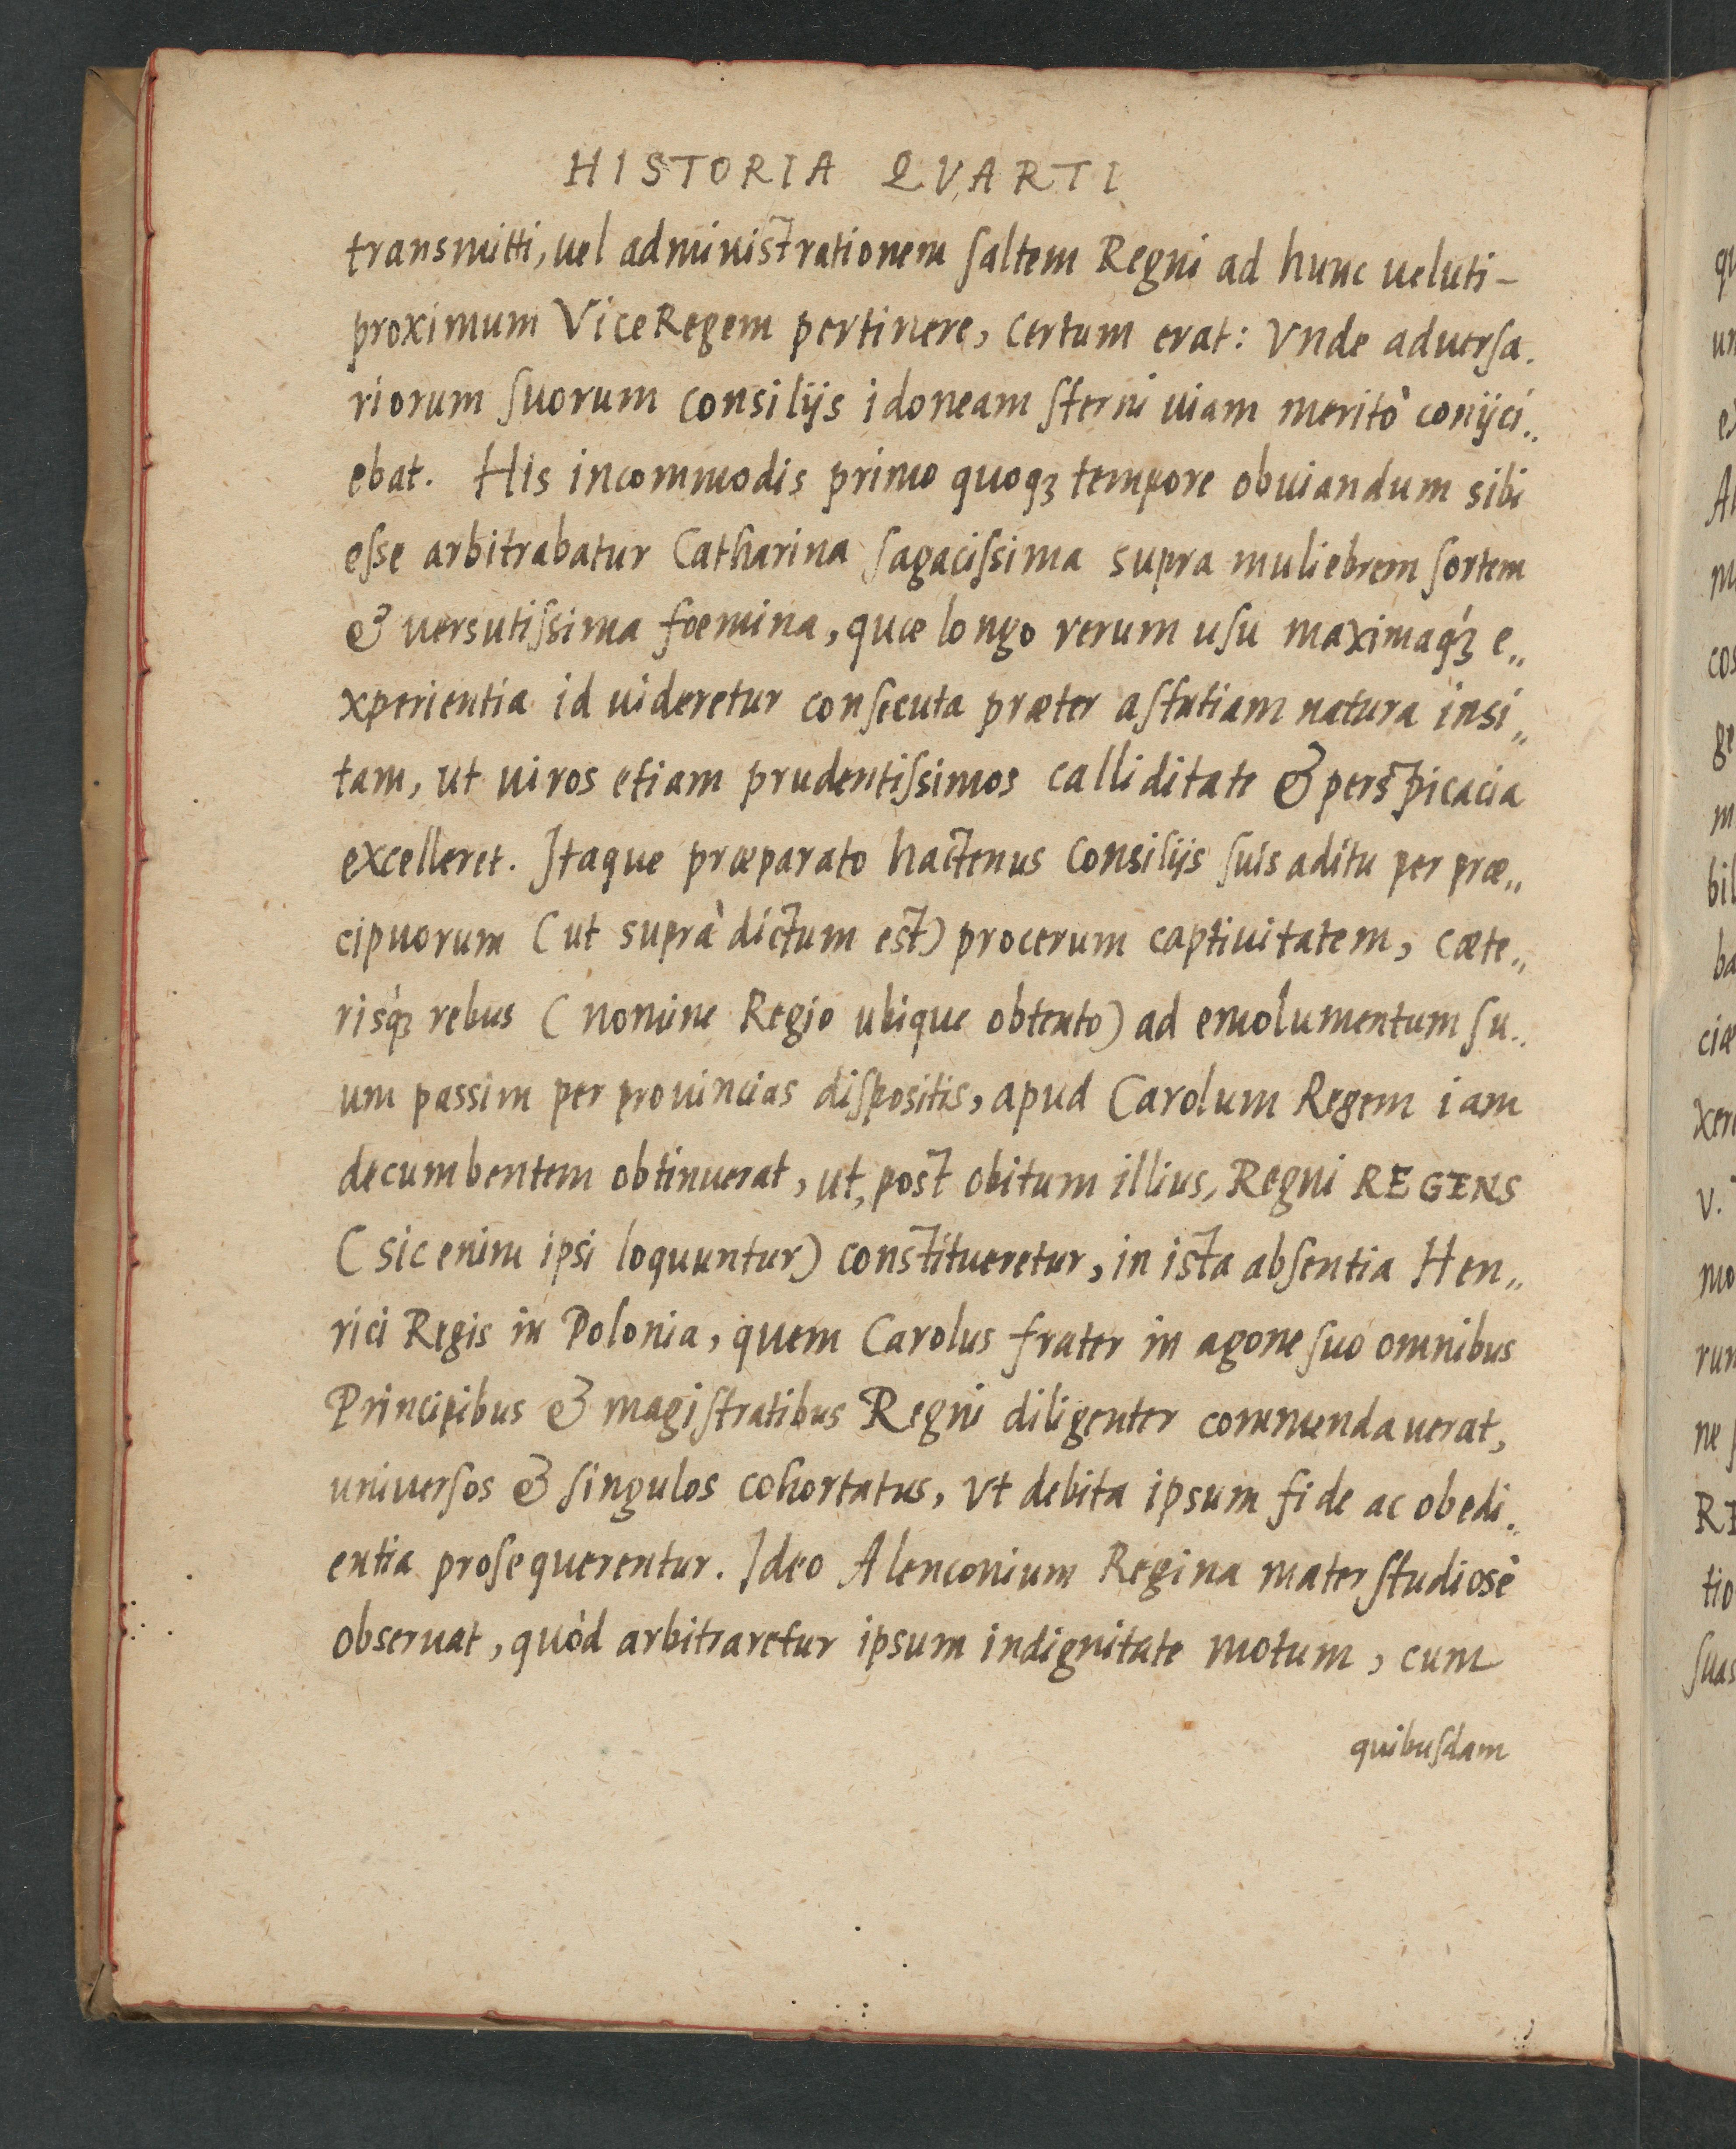 HISTORIA QVARTI
transmitti, uel administrationem ſaltem Regni ad hunc ueluti-
proximum ViceRegem pertinere, certum erat: Vnde aduerſa.
riorum ſuorum consilijs idoneam ſterni uiam meritò conijci„
ebat. His incommodis primo quoqꝫ tempore obuiandum sibi
eſse arbitrabatur Catharina ſagaciſsima supra muliebrem ſortem
& uersutiſsima foemina, quæ longo rerum uſu maximaqꝫ́ e„
xperientia id uideretur conſecuta præter aſtutiam natura insi„
tam, ut uiros etiam prudentiſsimos calliditate & perspicacia
excelleret. Itaque præparato hactenus consilijs ſuis aditu per præ„
cipuorum (ut suprà dictum est) procerum captiuitatem, cæte„
risqꝫ́ rebus (nomine Regio ubique obtento) ad emolumentum ſu„
um passim per prouincias diſpositis, apud Carolum Regem iam
decumbentem obtinuerat, ut, post obitum illius, Regni REGENS
(sic enim ipsi loquuntur) constitueretur, in ista abſentia Hen„
rici Regis in Polonia, quem Carolus frater in agone ſuo omnibus
Principibus & magiſtratibus Regni diligenter commendauerat,
uniuerſos & ſingulos cohortatus, vt debita ipsum fide ac obedi„
entia proſequerentur. Ideo Alenconium Regina mater ſtudiosè
obseruat, quòd arbitraretur ipsum indignitate motum, cum
quibuſdam